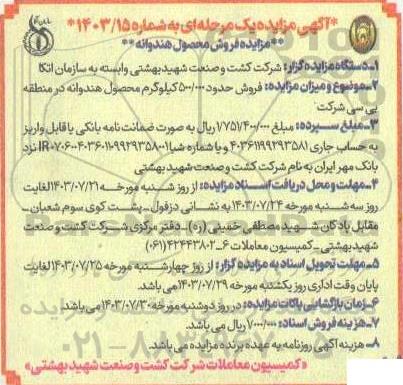 *آگهی مزایده یک مرحله ای به شماره ۱۴۰۳/۱۵*
**مزایده فروش محصول هندوانه**
۱ـ دستگاه مزایده گزار: شرکت کشت و صنعت شهید بهشتی وابسته به سازمان اتکا
۲ـ موضوع و میزان مزایده: فروش حدود ۵۰۰/۰۰۰ کیلوگرم محصول هندوانه در منطقه
بی سی شرکت
۳ـ مبلغ سپرده: مبلغ ۱/۷۵۱/۴۰۰/۰۰۰ ریال به صورت ضمانت نامه بانکی یا قابل واریز
به حساب جاری ۴۰۳۶۱۱۹۹۲۹۳۵۸۱ و یا شماره شبا IR۰۷۰۶۰۰۴۰۳۶۰۱۱۰۹۹۲۹۳۵۸۰۰۱ نزد
بانک مهر ایران به نام شرکت کشت و صنعت شهید بهشتی
۴ـ مهلت و محل دریافت اسناد مزایده: از روز شنبه مورخه ۱۴۰۳/۰۷/۲۱ لغایت
روز سه شنبه مورخه ۱۴۰۳/۰۷/۲۴ به نشانی دزفول ـ پشت کوی سوم شعبان ـ
مقابل پادگان شهید مصطفی خمینی (ره) ـ دفتر مرکزی شرکت کشت و صنعت
شهید بهشتی ـ کمیسیون معاملات ۶ـ۴۲۴۴۳۸۰۲ (۰۶۱)
۵ـ مهلت تحویل اسناد به مزایده گزار: از روز چهارشنبه مورخه ۱۴۰۳/۰۷/۲۵ لغایت
پایان وقت اداری روز یکشنبه مورخه ۱۴۰۳/۰۷/۲۹ می باشد.
۶ـ زمان بازگشایی پاکات مزایده: در روز دوشنبه مورخه ۱۴۰۳/۰۷/۳۰ می باشد.
۷ـ هزینه فروش اسناد: ۷/۰۰۰/۰۰۰ ریال می باشد.
۸ـ هزینه آگهی روزنامه به عهده برنده مزایده می باشد.
«کمیسیون معاملات شرکت کشت و صنعت شهید بهشتی»